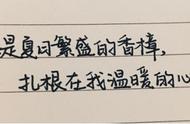 是夏日繁盛的香樟,
扎根在我温暖的心